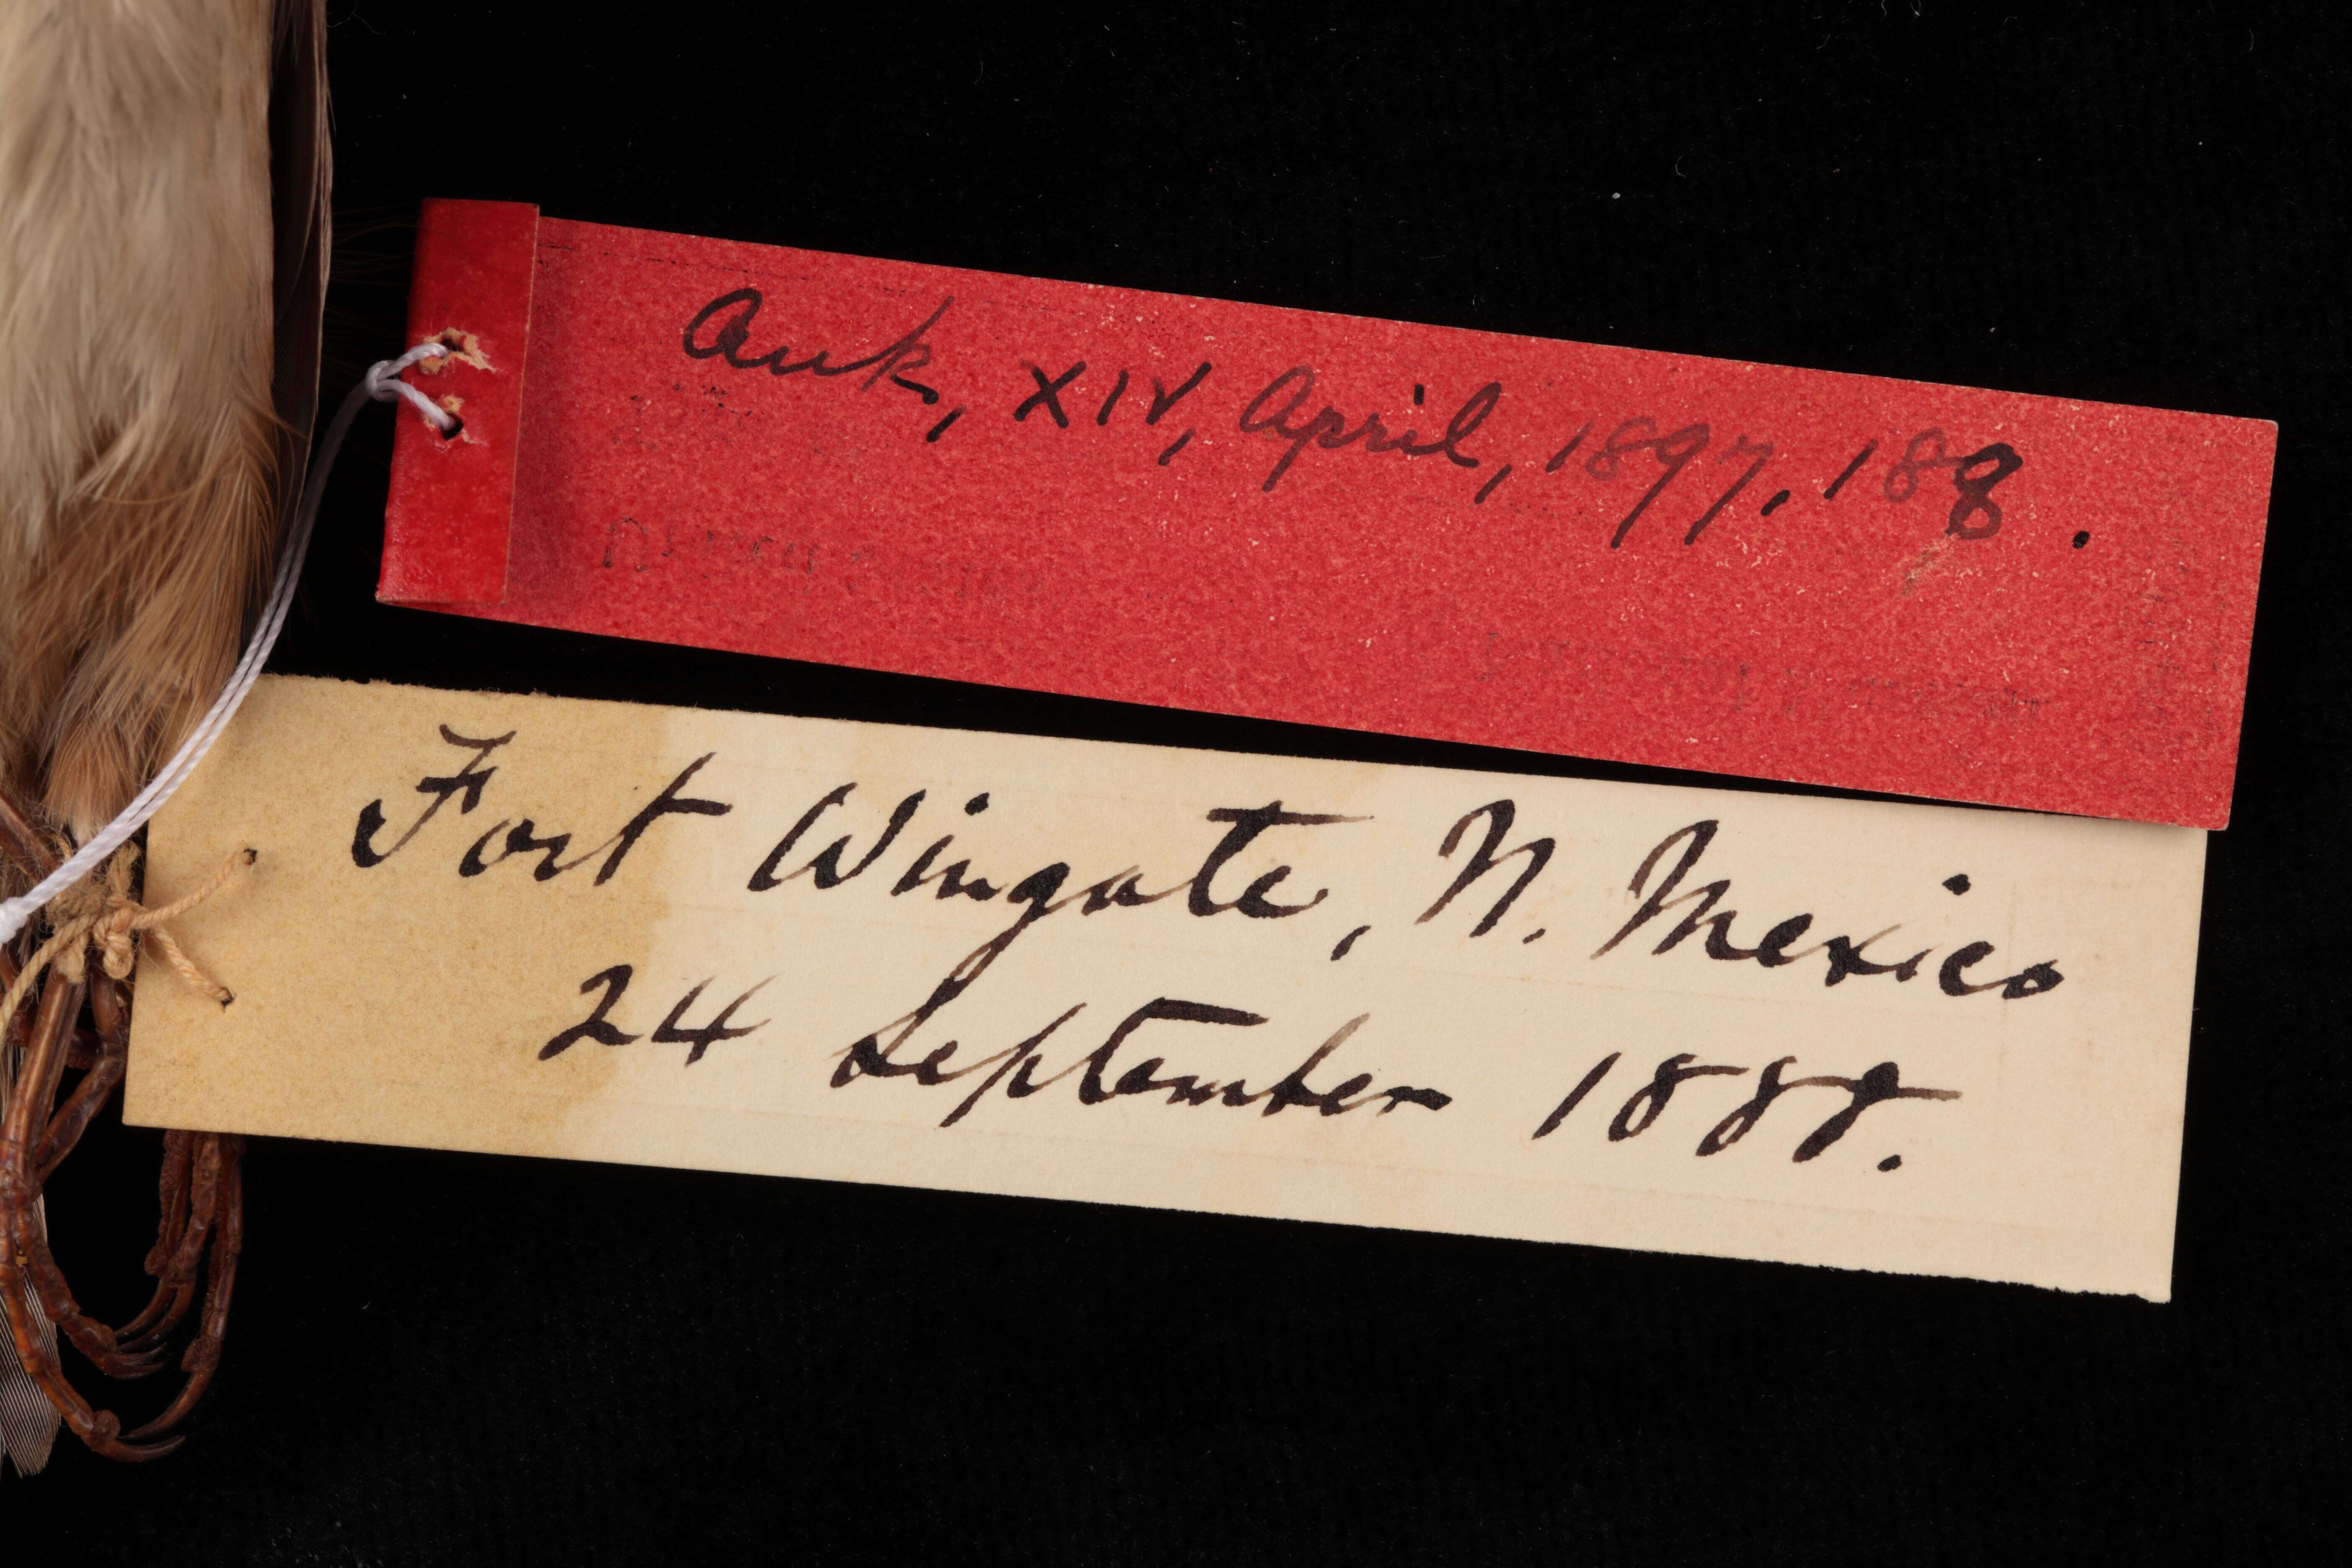 Auk, XIV, April, 1897, 188.
Fort Wingate, N. Mexico
24 September 1888.